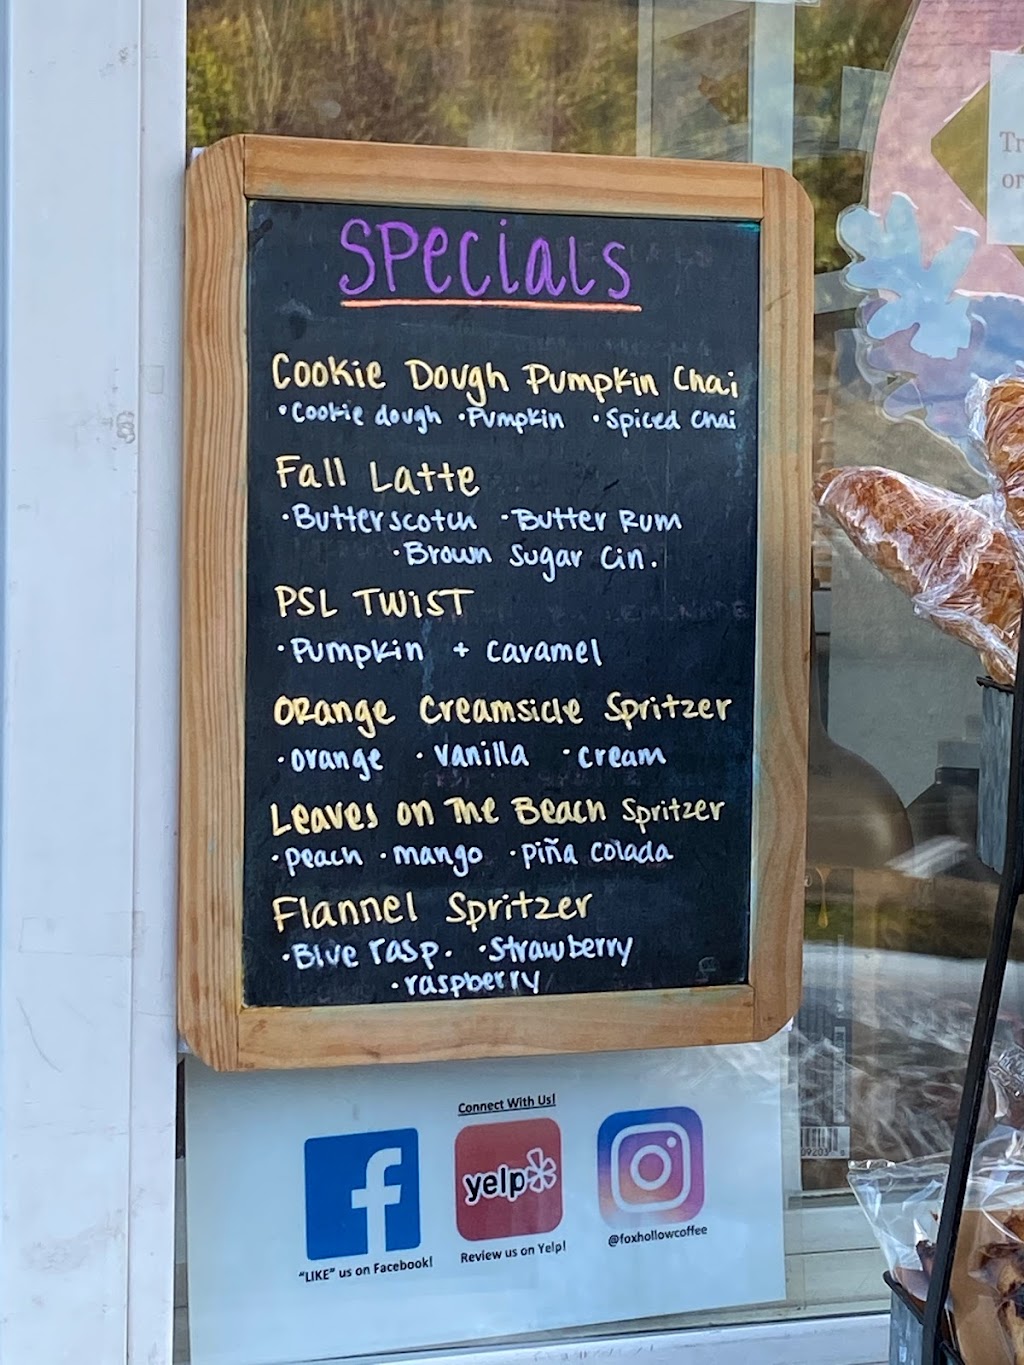 Specials
Cookie Dough Pumpkin Chai
• Cookie dough • Pumpkin • Spiced Chai
Fall Latte
• Butterscotch • Butter Rum
• Brown Sugar Cin.
PSL TWIST
• Pumpkin + Caramel
Orange Creamsicle Spritzer
• orange • vanilla • cream
Leaves on The Beach Spritzer
• peach • mango • piña colada
Flannel Spritzer
• Blue rasp. • Strawberry
• raspberry
Connect With Us!
f
yelp
"LIKE" us on Facebook!
Review us on Yelp!
@foxhollowcoffee